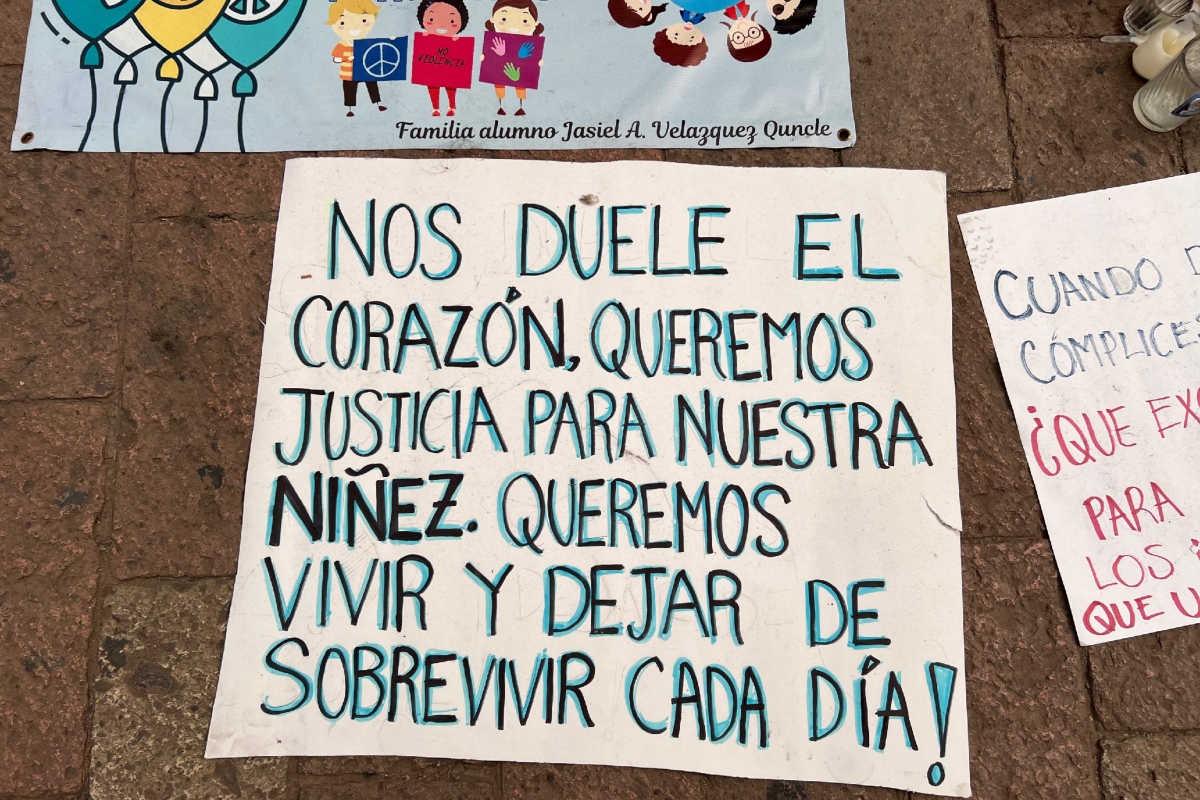 NO
VIOLENCIA
Familia alumno Jasiel A. Velazquez Quncle
NOS DUELE EL
CORAZÓN, QUEREMOS
JUSTICIA PARA NUESTRA
NIÑEZ. QUEREMOS
VIVIR Y DEJAR DE
SOBREVIVIR CADA DÍA!
CUANDO
CÓMPLICES
¿QUE
PARA
LOS
QUE